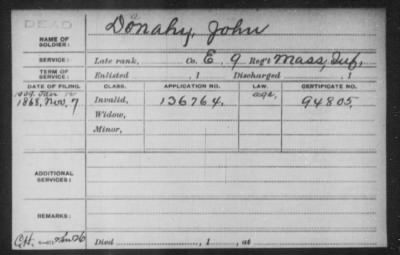 DEAD
NAME OF SOLDIER: Donahy, John
SERVICE: Late rank, Co. E, 9 Reg't Mass, Inf,
TERM OF SERVICE: Enlisted , 1 Discharged , 1
DATE OF FILING. CLASS. APPLICATION NO. LAW. CERTIFICATE NO.
1868, Nov, 7 Invalid, 136764. age. 94805.
Widow,
Minor,
ADDITIONAL SERVICES:
REMARKS:
C.H. Died , 1 , at